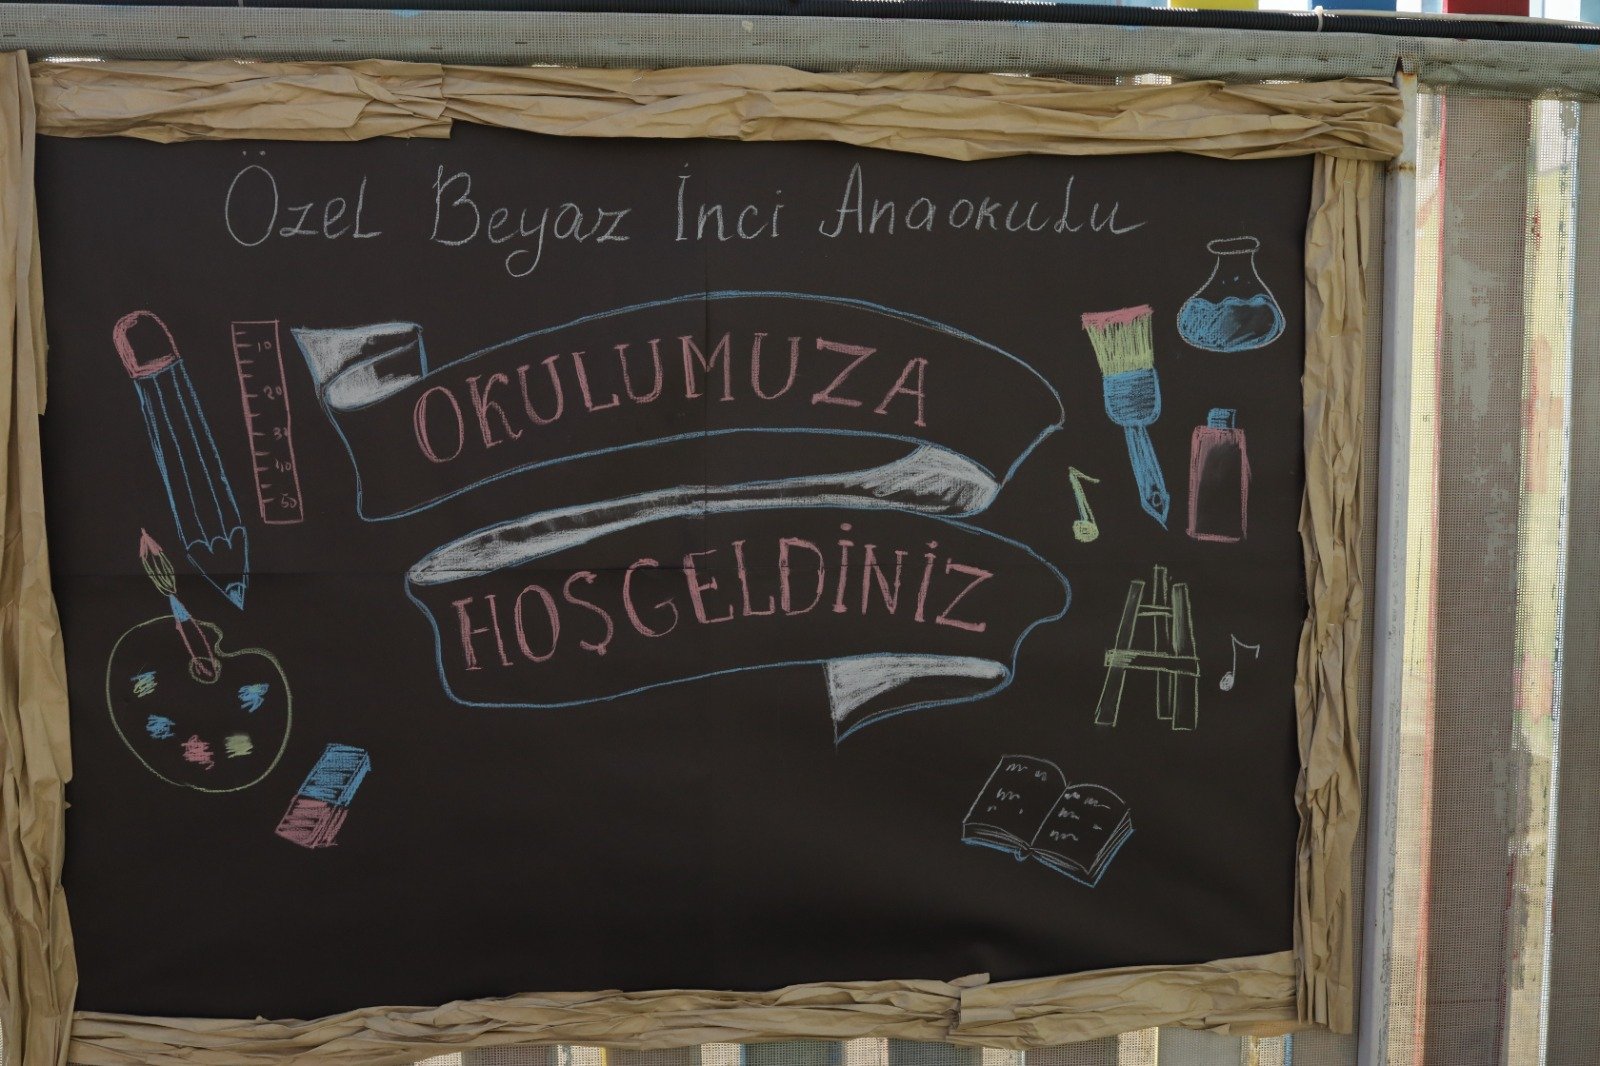 Özel Beyaz İnci Anaokulu
OKULUMUZA
HOŞGELDİNİZ
10
20
30
40
50